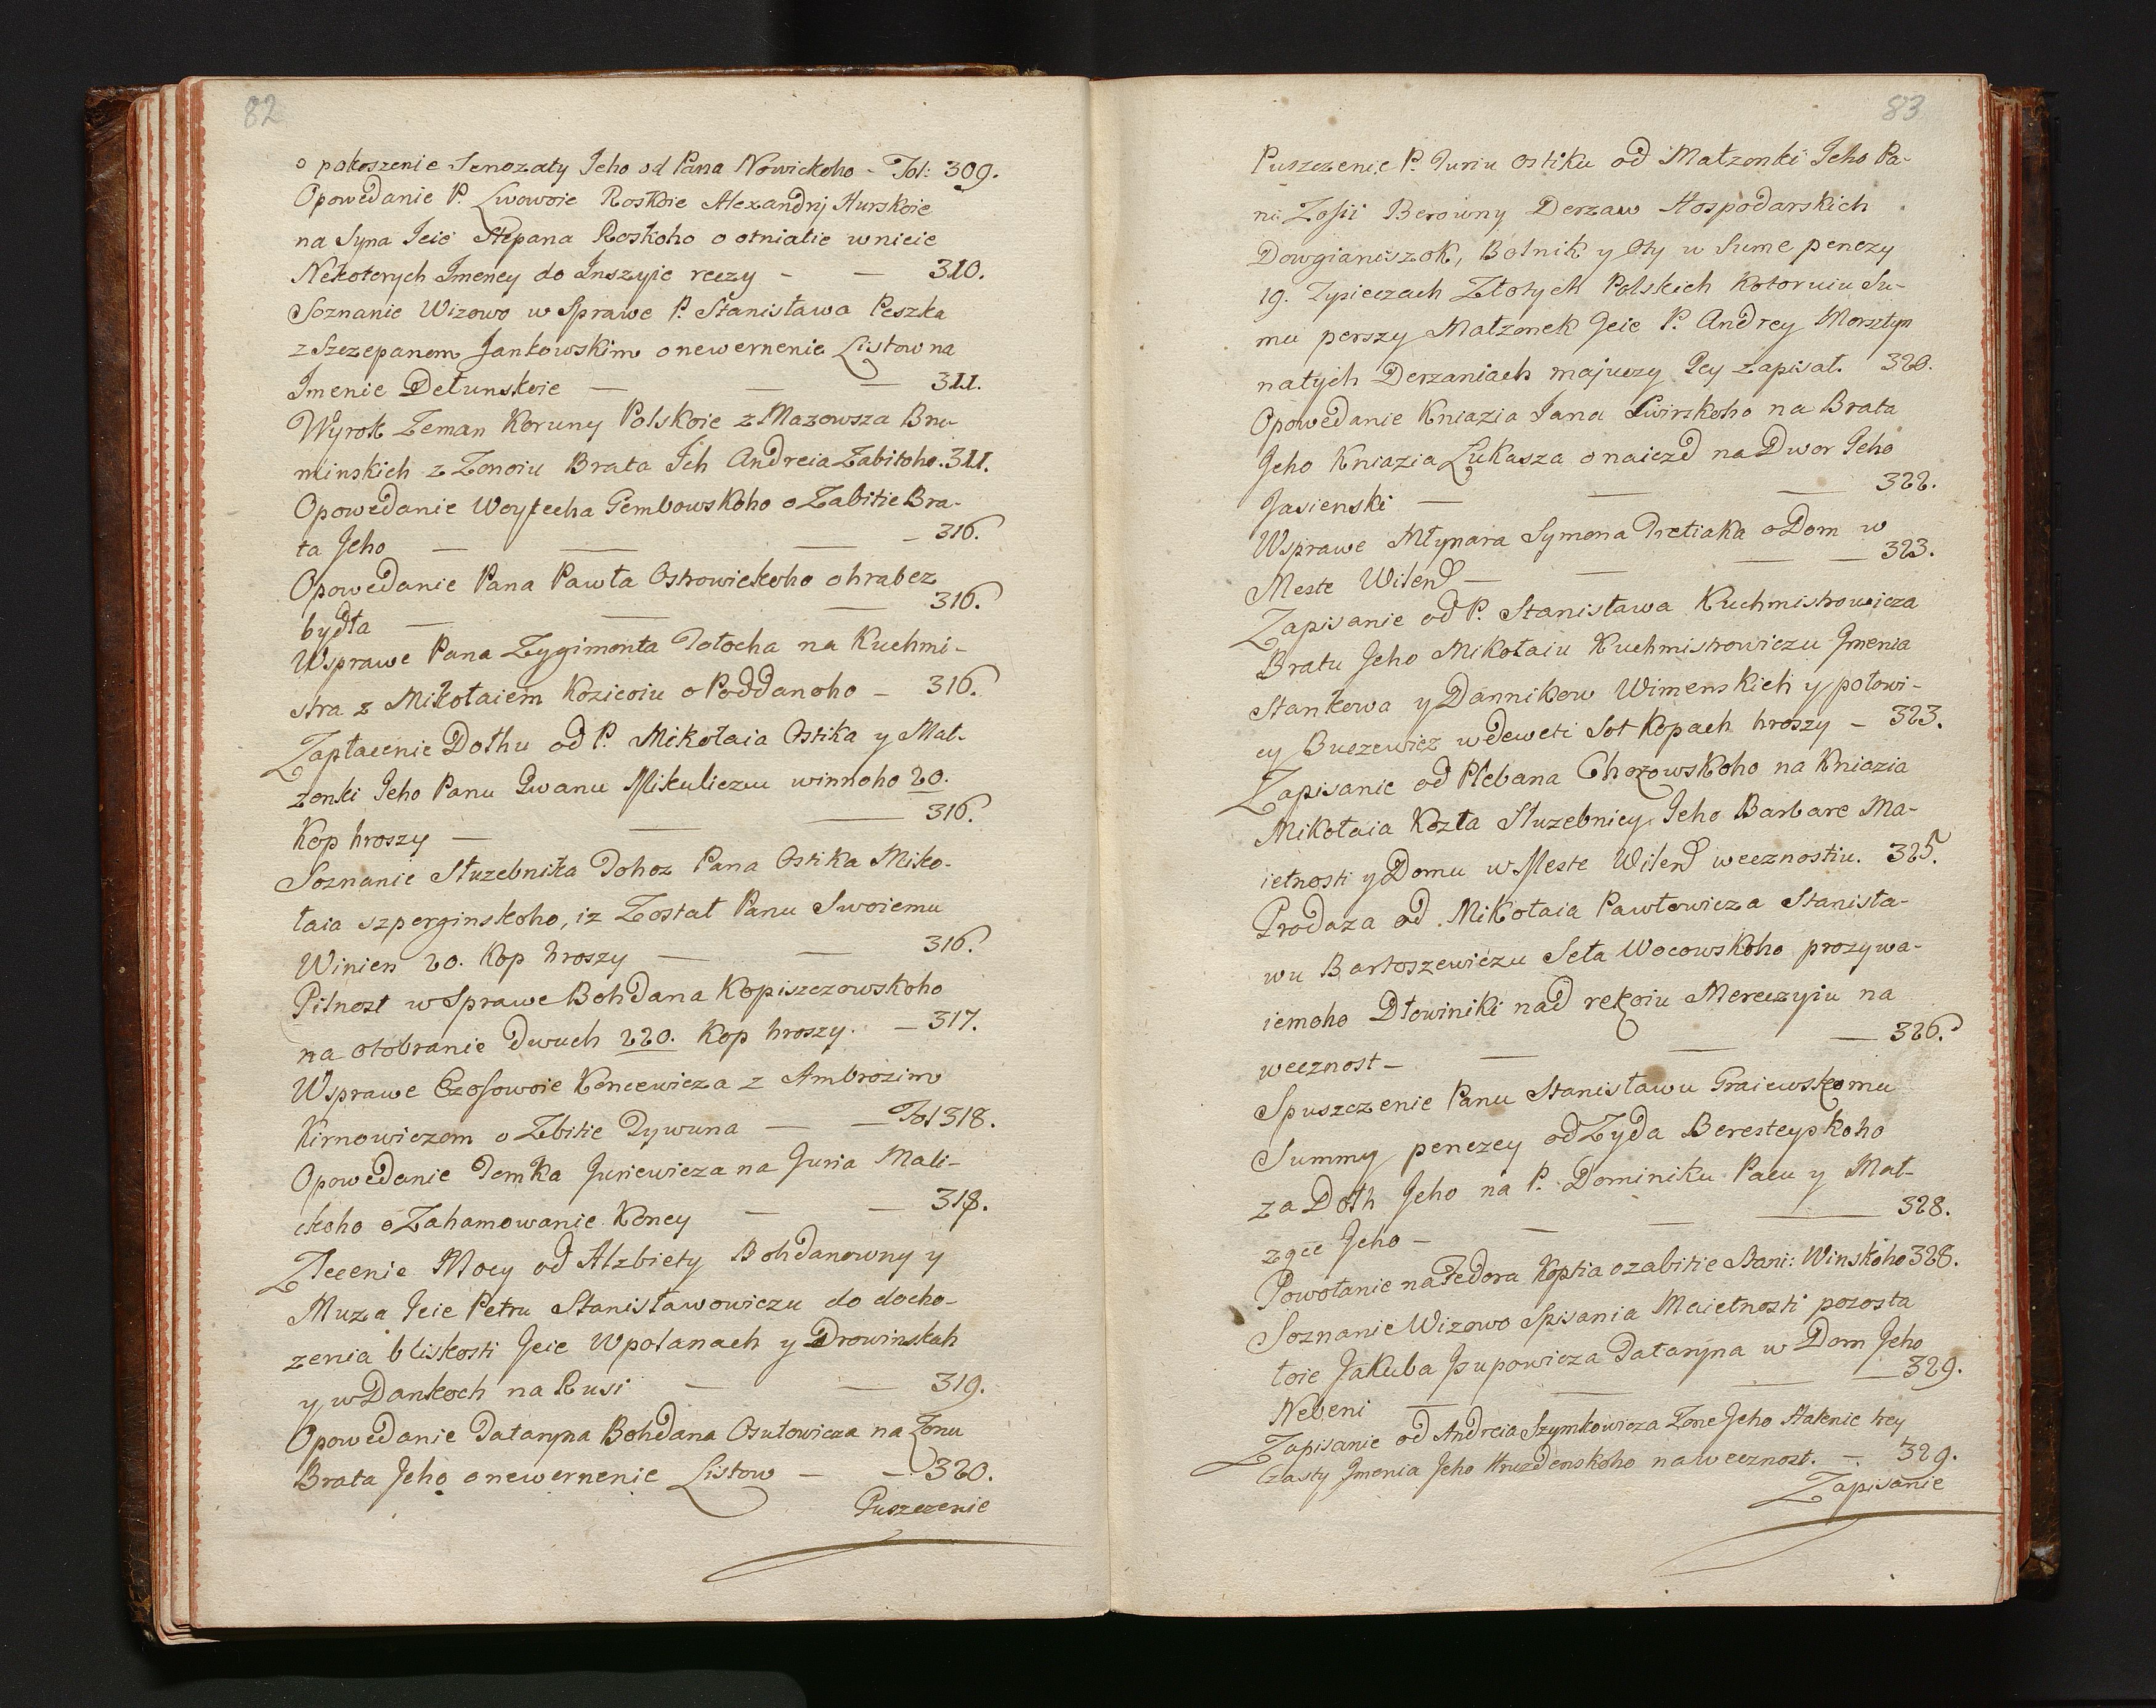 82
o pokoszenie Senozaty Jeho od Pana Nowickoho - Fol: 309.
Opowedanie P. Lwowoie Roskoie Alexandry Hurskoie
na Syna Jeie Stepana Roskoho o otniatie wnieie
Nekotorych Imeney do Inszyie reczy - — 310.
Soznanie Wizowo w Sprawe P. Stanisława Peszka
z Szczepanom Jankowskim o newernenie Listow na
Imenie Dełunskoie — — — 311.
Wyrok Zeman Koruny Polskoie z Mazowsza Bru-
minskich z Zonoiu Brata Ich Andreia Zabitoho. 311.
Opowedanie Woytecha Gembowskoho o Zabitie Bra-
ta Jeho — — — - 316.
Opowedanie Pana Pawła Ostrowickoho o hrabez
bydła — — — 316.
Wsprawe Pana Zygimonta Tołocha na Kuchmi-
stra z Mikołaiem Kozicoiu o Poddanoho - 316.
Zapłacenie Dołhu od P. Mikołaia Ostika y Mał-
zonki Jeho Panu Iwanu Mikuliczu winnoho 20.
Kop hroszy — — — 316.
Soznanie Służebnika Tohoz Pana Ostika Miko-
łaia szperginskoho, iz Został Panu Swoiemu
Winien 20. Kop hroszy — — 316.
Pilnost w Sprawe Bohdana Kopiszczowskoho
na otobranie dwuch 220. Kop hroszy. — 317.
Wsprawe Czosowoie Koncewicza z Ambrozim
Kirnowiczom o Zbitie Tywuna — — Fol 318.
Opowedanie Demka Juriewicza na Juria Mali-
ckoho o Zahamowanie Koney — — 318.
Zlecenie Mocy od Alzbiety Bohdanowny y
Muza Jeie Petru Stanisławowiczu do docho-
zenia bliskosti Jeie Wpolanach y Drowinskah
y w Dankoch na Rusi — — 319.
Opowedanie Tataryna Bohdana Osułowicza na Zonu
Brata Jeho o newernenie Listow — — 320.
Puszczenie
83
Puszczenie P. Juriu Ostiku od Małzonki Jeho Pa-
ni Zofii Berowny Derzaw Hospodarskich
Dowgianiszok, Bolnik y Oty w Sume penezy
19. Tysieczach Złotych Polskich Kotoruiu Su-
mu perszy Małzonek Jeie P. Andrey Morsztyn
natych Derzaniach majuczy Jey zapisał. 320.
Opowedanie Kniazia Jana Swirskoho na Brata
Jeho Kniazia Łukasza o naiezd na Dwor Jeho
Jasienski — — — 322.
Wsprawe Młynara Symona Tretiaka o Dom w
Meste Wilend — — — — 323.
Zapisanie od P. Stanisława Kuchmistrowicza
Bratu Jeho Mikołaiu Kuchmistrowiczu Imenia
Stankowa y Dannikow Wimenskich y połowi-
cy Buczewicz wdeweti Sot Kopach hroszy - 323.
Zapisanie od Plebana Chozowskoho na Kniazia
Mikołaia Kozła Służebnicy Jeho Barbare Ma-
ietnosti y Domu w Meste Wilend wecznostiu. 325.
Prodaza od Mikołaia Pawłowicza Stanisła-
wu Bartoszewiczu Seła Wocowskoho prozywa-
iemoho Dłowiniki nad rekoiu Mereczyiu na
wecznost — — — — 326.
Spuszczenie Panu Stanisławu Graiewskomu
Summy penezey od Zyda Beresteyskoho
za Dołh Jeho na P. Dominiku Pacu y Mał-
zgee Jeho — — — — 328.
Powołanie na Fedora Koptia o zabitie Stani: Winskoho 328.
Soznanie Wizowo Spisania Maietnosti pozosta
łoie Jakuba Jsupowicza Tataryna w Dom Jeho
Neweni — — — — 329.
Zapisanie od Andreia Szymkowicza Zone Jeho Halenie trey
czasty Imenia Jeho Hruzdenskoho na wecznost. — 329.
Zapisanie